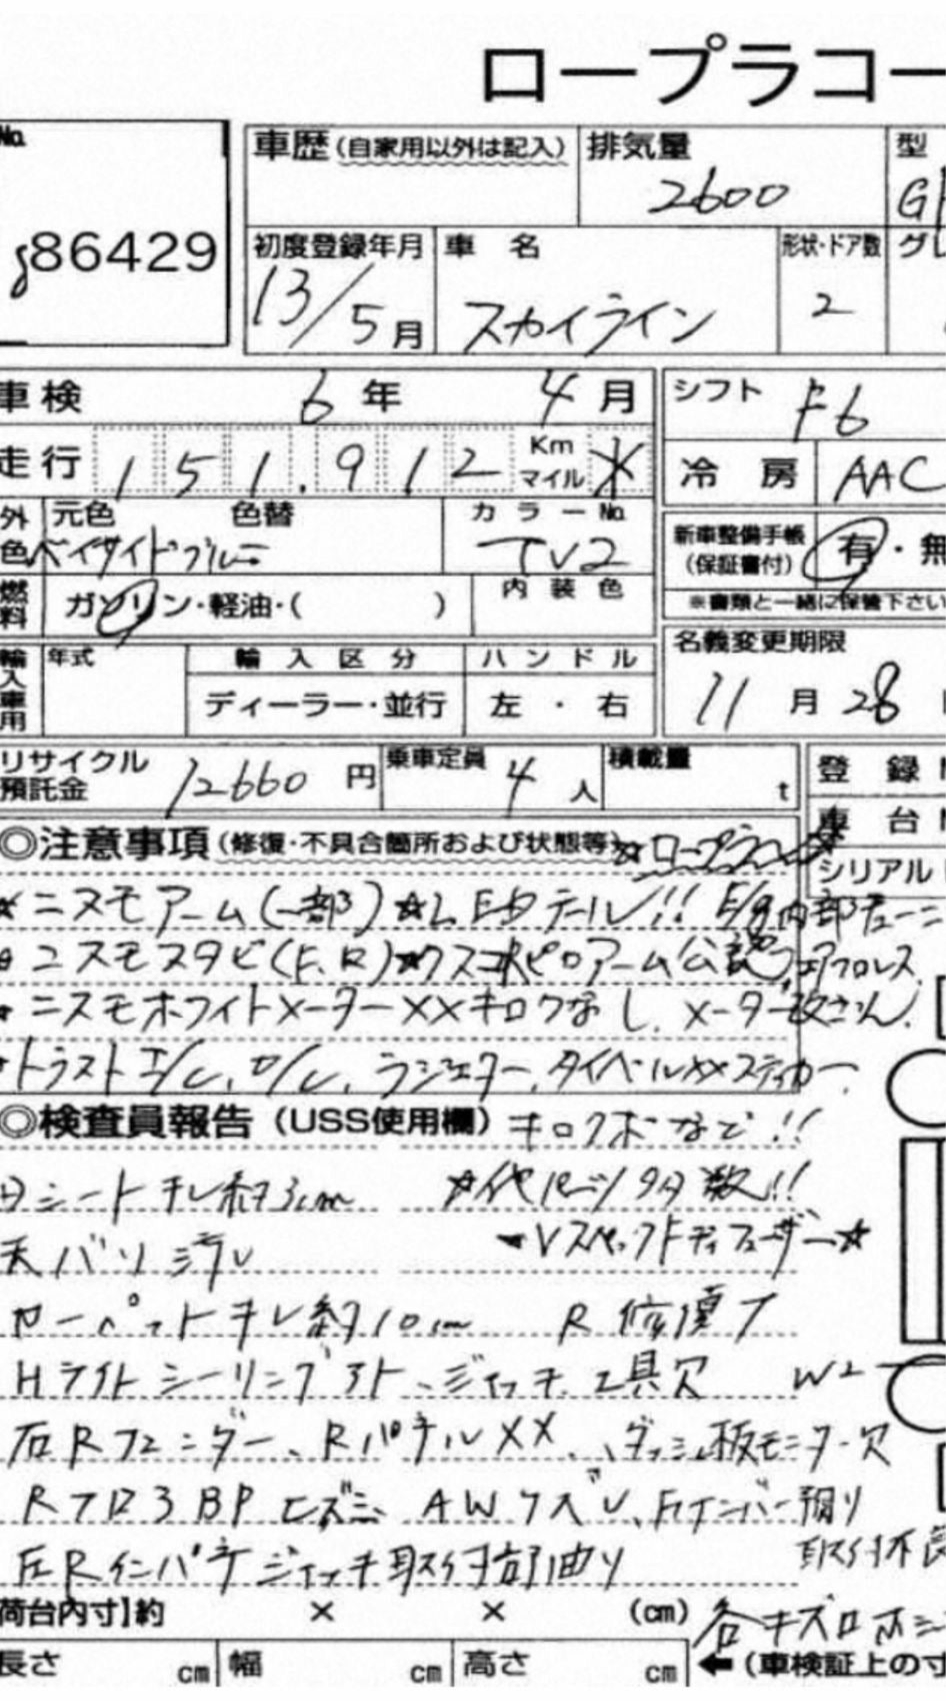 ロープラコー
No.
86429
車歴(自家用以外は記入) 排気量 型
2600
初度登録年月 車名 形状・ドア数 グレ
13/5月 スカイライン 2
車検 6年 4月 シフト F6
走行 151,912 Km マイル 冷房 AAC
外色 元色 色替 カラーNo.
ベイサイドブルー TV2
新車整備手帳(保証書付) 有・無
※書類と一緒に保管下さい
燃料 ガソリン・軽油・( ) 内装色
名義変更期限
11月28
輸入車用 年式 輸入区分 ハンドル
ディーラー・並行 左・右
リサイクル預託金 12660円 乗車定員 4人 積載量 t
登録
車台
シリアル
◎注意事項(修復・不具合箇所および状態等)
★ニスモアーム(一部)★LEDテール!! E/g内部
ニスモスタビ(F.R)★クスコ ピロアーム公認 エアフロレス
ニスモホワイトメーター××キロクなし.メーター改ざん.
トラストI/C.O/C.ラジエター.タイベル××ステッカー
◎検査員報告(USS使用欄) キロクボなど!!
シートキレ約3cm ★他パーツ多数!!
Vスペックトディフューザー★
天バリ汚レ
カーペットキレ約10cm R修復
Hライトシーリングアト、ジャッキ.工具欠 W2
右Rフェンダー、Rパネル××、ダッシュ板モニター欠
Rフロア BPヒズミ AWケズレ、Fナンバー
取付不良
左Rインパネジャッキ取付部曲り
荷台内寸]約 × × (cm) 各キズ
長さ cm 幅 cm 高さ cm ←(車検証上の寸